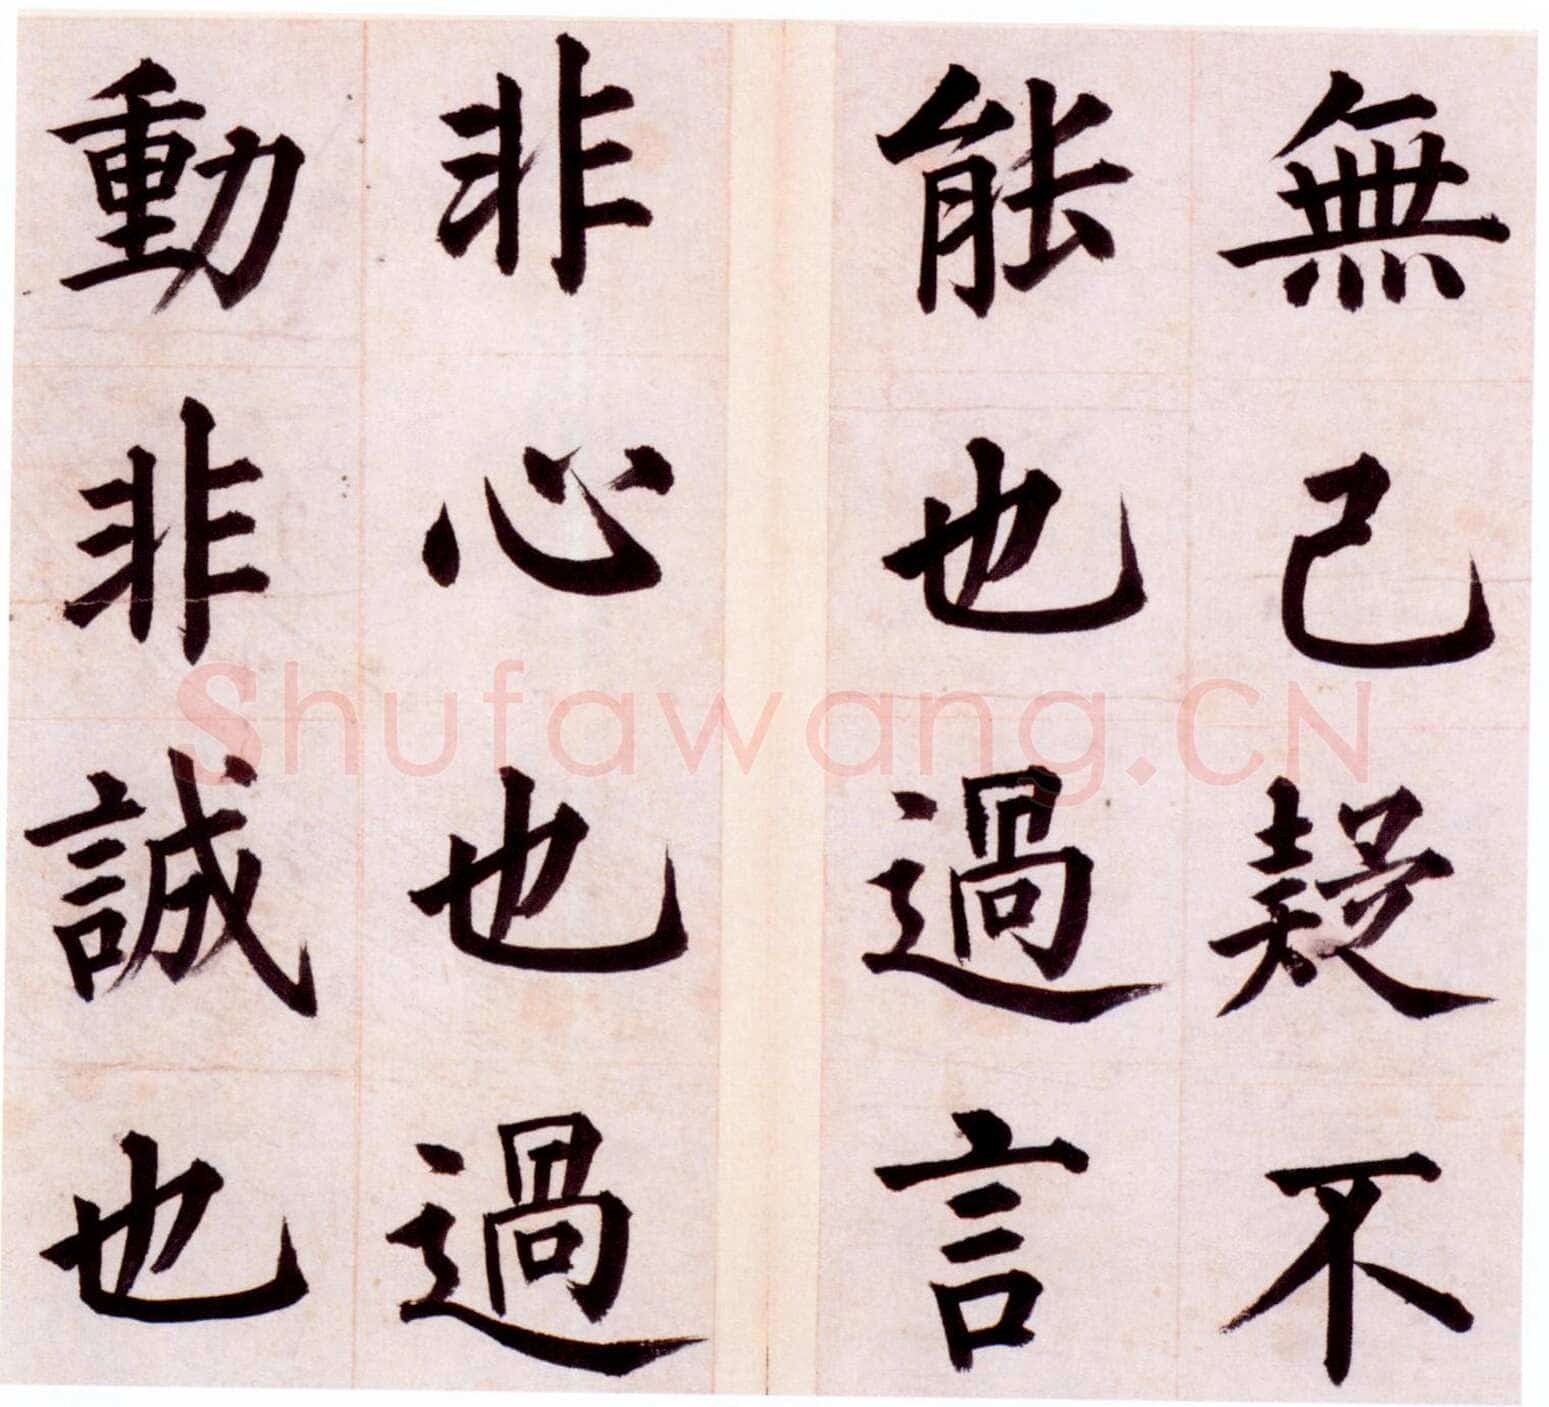 無己疑不
能也過言
非心也過
動非誠也
Shufawang.CN